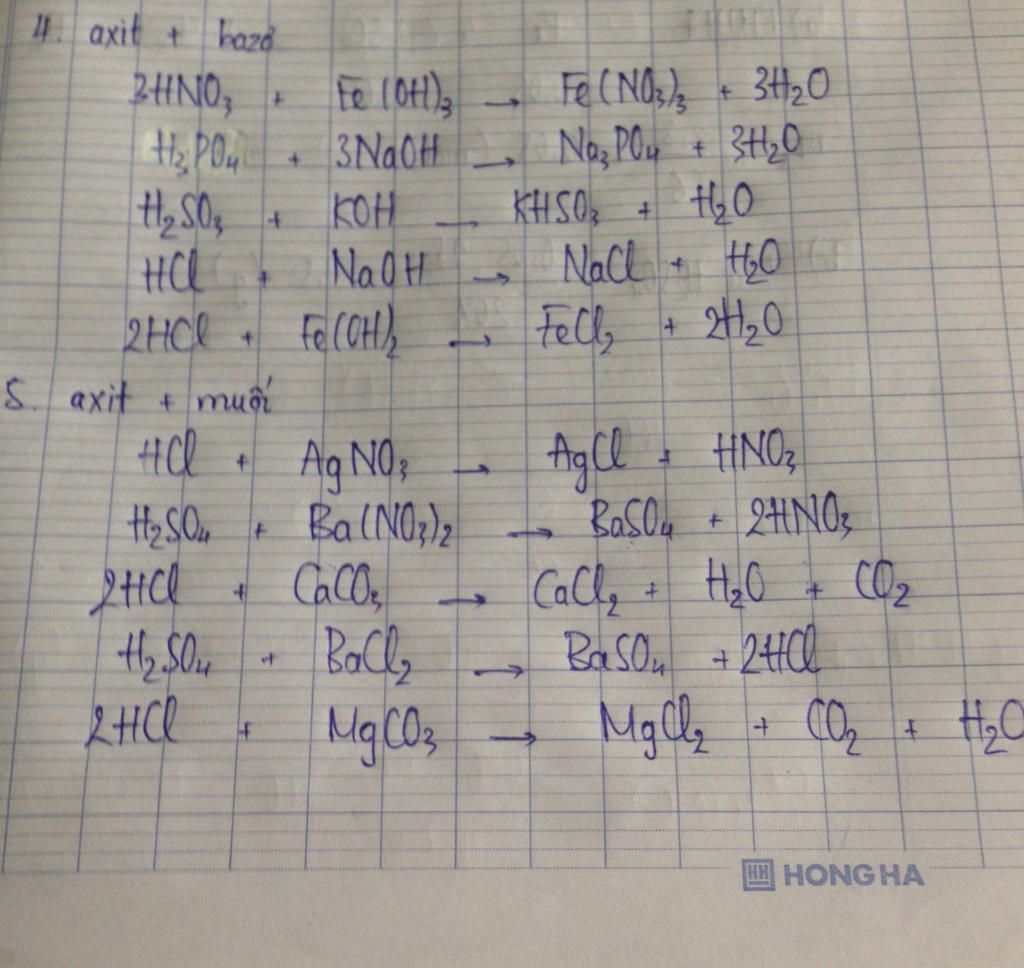 4. axit + bazơ
3HNO₃ + Fe(OH)₃ → Fe(NO₃)₃ + 3H₂O
H₃PO₄ + 3NaOH → Na₃PO₄ + 3H₂O
H₂SO₃ + KOH → KHSO₃ + H₂O
HCl + NaOH → NaCl + H₂O
2HCl + Fe(OH)₂ → FeCl₂ + 2H₂O
5. axit + muối
HCl + AgNO₃ → AgCl + HNO₃
H₂SO₄ + Ba(NO₃)₂ → BaSO₄ + 2HNO₃
2HCl + CaCO₃ → CaCl₂ + H₂O + CO₂
H₂SO₄ + BaCl₂ → BaSO₄ + 2HCl
2HCl + MgCO₃ → MgCl₂ + CO₂ + H₂O
HH HONG HA